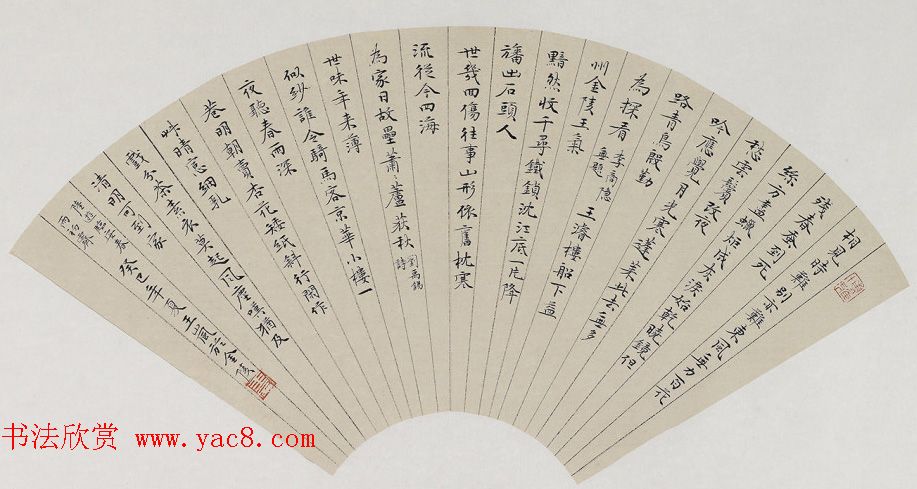 相見時難別亦難東風無力百花
殘春蠶到死
絲方盡蠟炬成灰淚始乾曉鏡但
愁雲鬢改夜
吟應覺月光寒蓬萊此去無多
路青鳥殷勤
為探看
李商隱
無題
王濬樓船下益
州金陵王氣
黯然收千尋鐵鎖沈江底一片降
旛出石頭人
世幾回傷往事山形依舊枕寒
流從今四海
為家日故壘蕭蕭蘆荻秋
劉禹錫
詩
世味年来薄
似紗誰令騎馬客京華小樓一
夜聽春雨深
巷明朝賣杏花矮紙斜行閒作
艸晴窓細乳
戲分茶素衣莫起風塵嘆猶及
清明可到家
陸游臨安春
雨初霽
癸巳年夏王嵐於金陵
书法欣赏 www.yac8.com